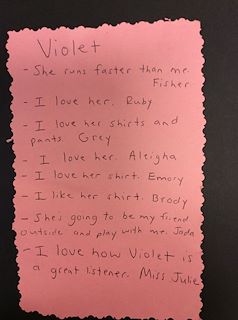 Violet
- She runs faster than me.
Fisher
- I love her. Ruby
- I love her shirts and
pants. Grey
- I love her. Aleigha
- I love her shirt. Emory
- I like her shirt. Brody
- She's going to be my friend
outside and play with me. Jada
- I love how Violet is
a great listener. Miss Julie